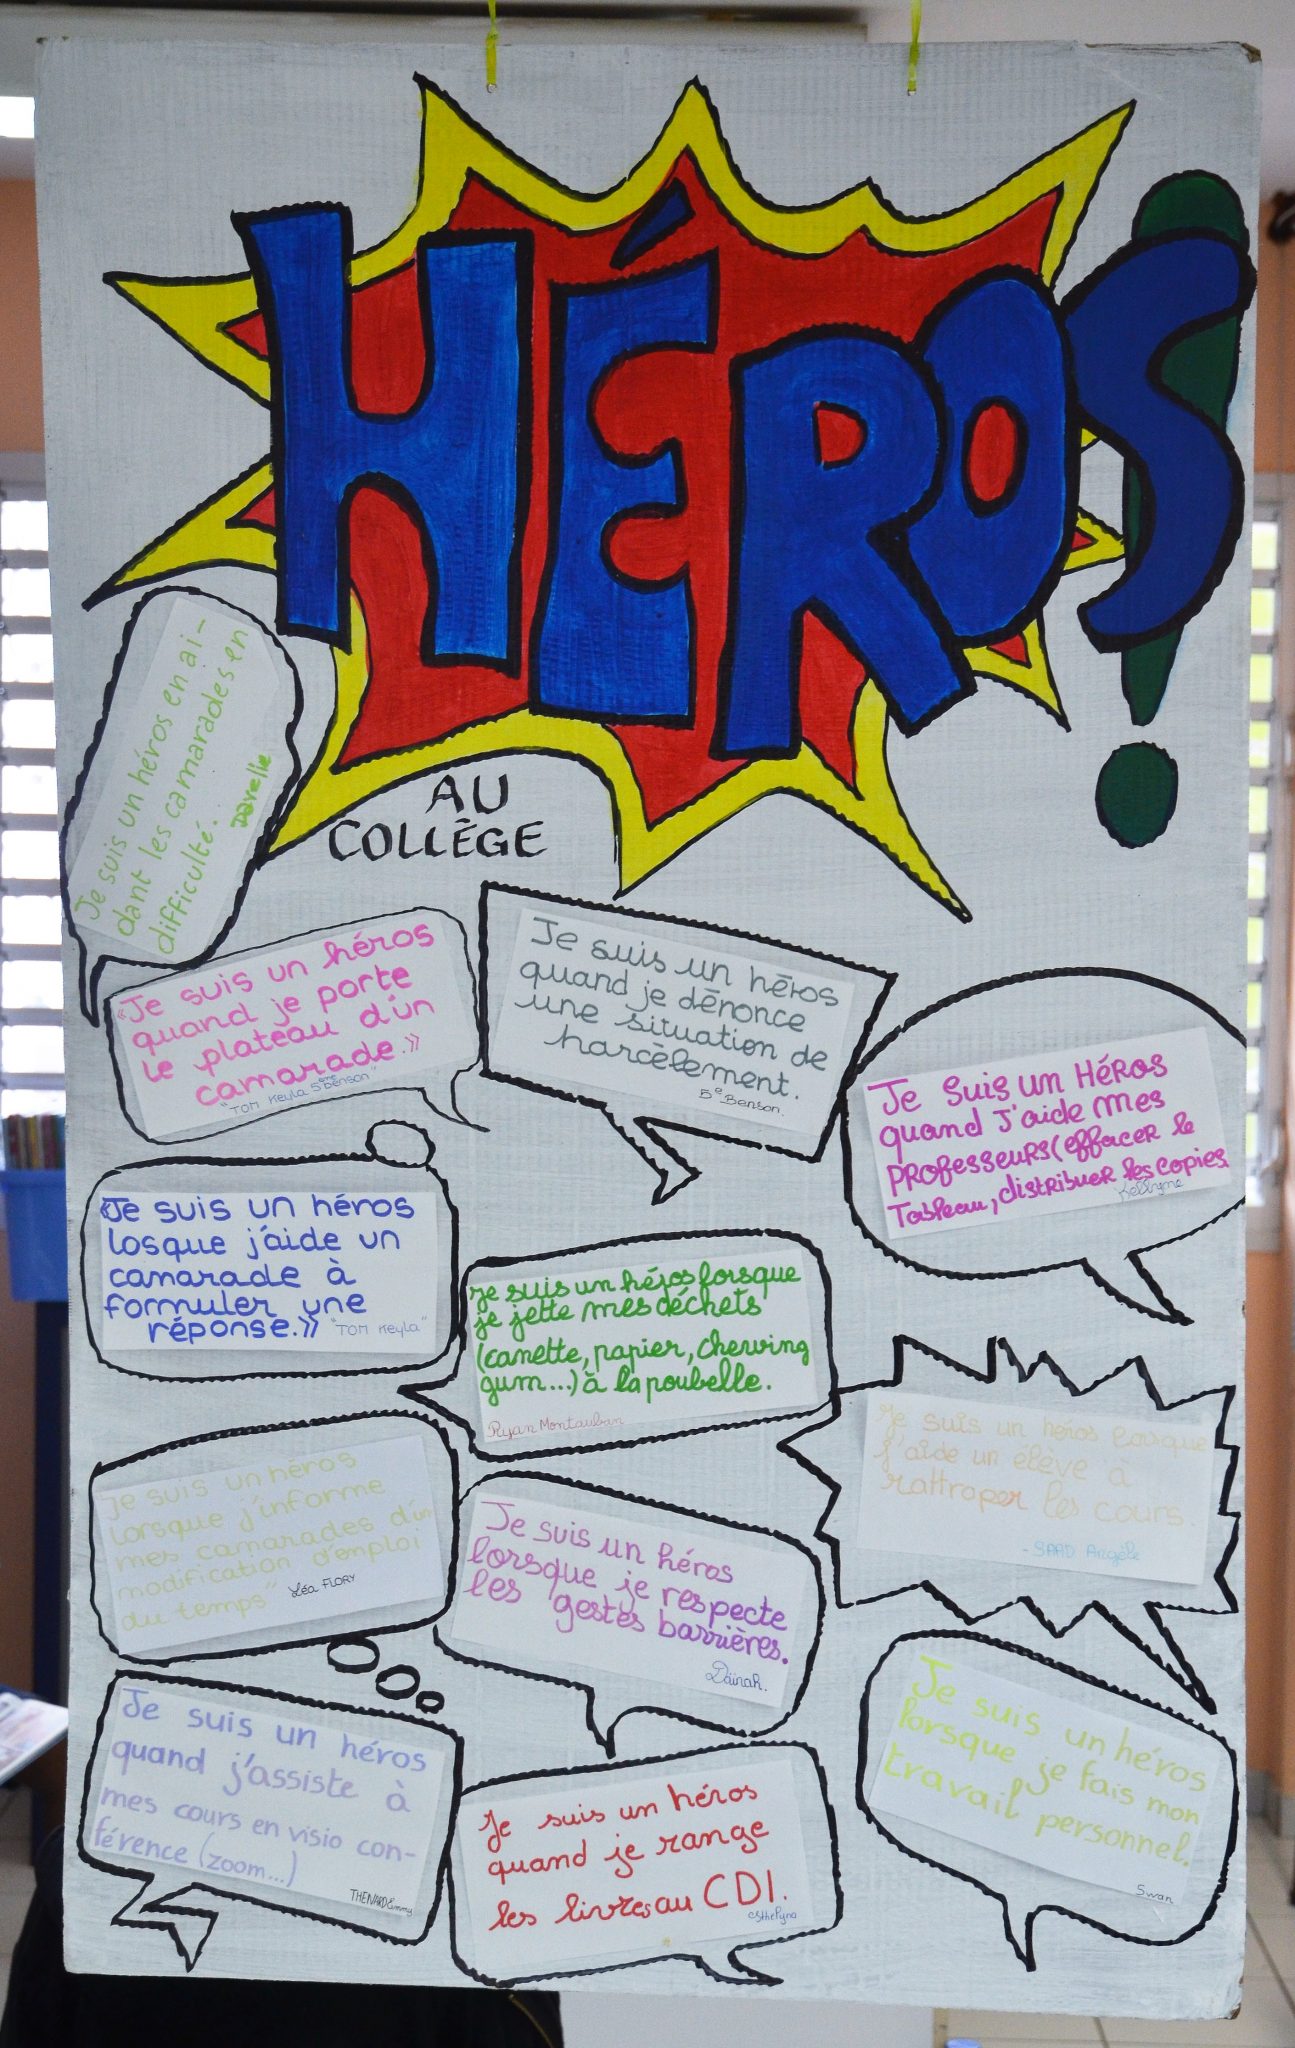 HÉROS!
AU
COLLÈGE
Je suis un héros en ai-
dant les camarades en
difficulté.
Davelie
«Je suis un héros
quand je porte
le plateau d'un
camarade.»
"TOM Keyla 5ème Benson"
Je suis un héros
quand je dénonce
une situation de
harcèlement.
5e Benson.
Je suis un Héros
quand J'aide mes
professeurs(effacer le
Tableau, distribuer les copies
Kellyme
«Je suis un héros
losque j'aide un
camarade à
formuler une
réponse.» "TOM Keyla"
Je suis un héros lorsque
je jette mes déchets
(canette, papier, chewing
gum...) à la poubelle.
Ryan Montauban
Je suis un héros lorsque
J'aide un élève à
rattraper les cours.
- SAAD Angèle
Je suis un héros
lorsque j'informe
mes camarades d'un
modification d'emploi
du temps" Léa FLORY
Je suis un héros
lorsque je respecte
les gestes barrières.
Daïnah.
Je suis un héros
lorsque je fais mon
travail personnel.
Swan
Je suis un héros
quand j'assiste à
mes cours en visio con-
férence (zoom...)
THENARD Emmy
Je suis un héros
quand je range
les livres au CDI.